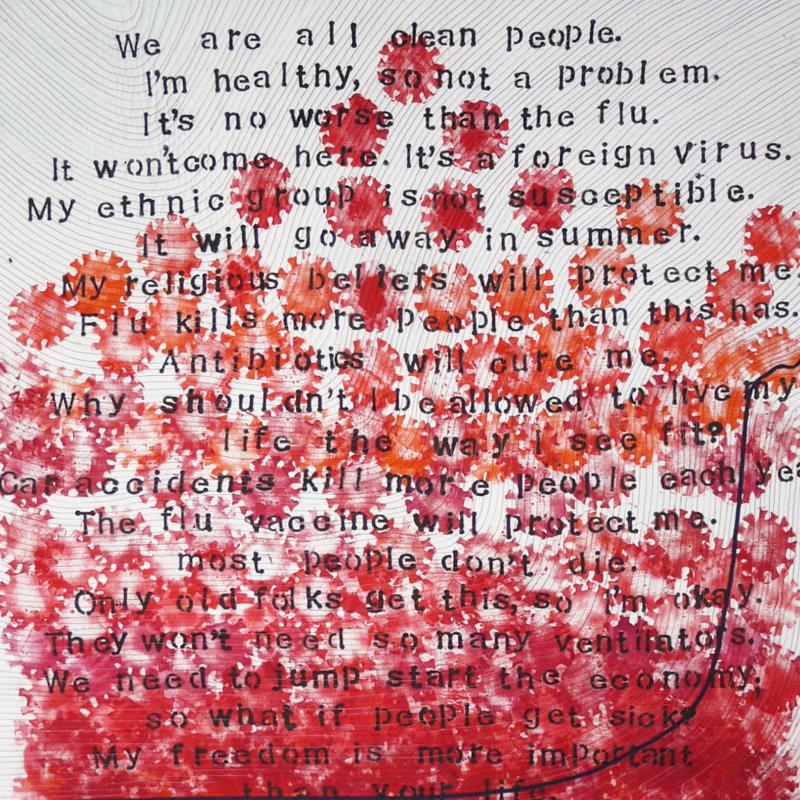 We are all clean people.
I'm healthy, so not a problem.
It's no worse than the flu.
It won't come here. It's a foreign virus.
My ethnic group is not susceptible.
It will go away in summer.
My religious beliefs will protect me.
Flu kills more people than this has.
Antibiotics will cure me.
Why shouldn't I be allowed to live my
life the way I see fit?
Car accidents kill more people each yea
The flu vaccine will protect me.
most people don't die.
Only old folks get this, so I'm okay.
They won't need so many ventilators.
We need to jump start the economy;
so what if people get sick?
My freedom is more important
than your life.